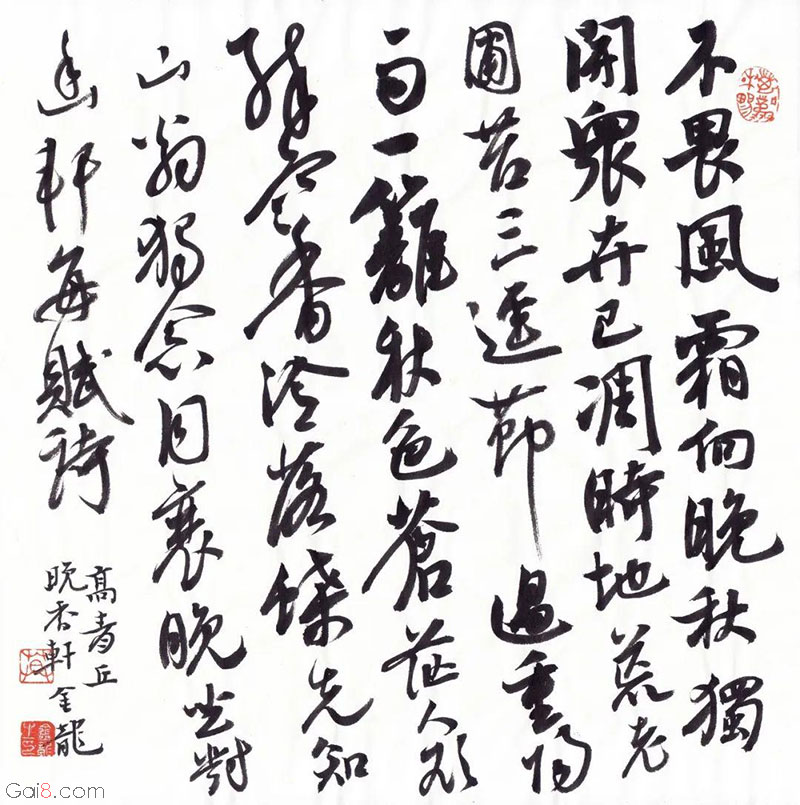 不畏風霜向晚秋獨
開眾卉已凋時地荒老
圃苔三逕節過重陽
雨一籬秋色蒼茫人欲
醉寒香冷落蝶先知
山翁獨念同衰晚坐對
幽軒每賦詩
高青丘
晚香軒金龍
Gai8.com